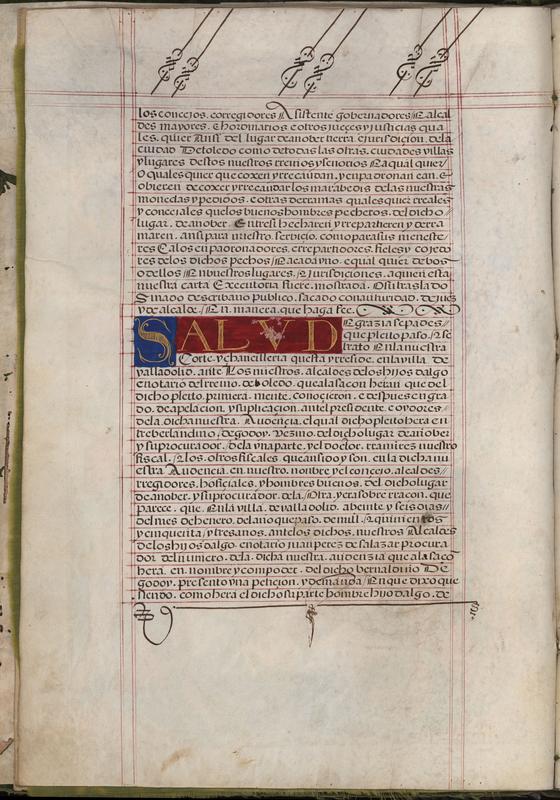 los concejos. corregidores Asistente gobernadores E alcal
des mayores. E hordinarios e otros jueçes y justicias qua
les. quier Ansi del lugar de anober tierra. e jurisdiçion. de la
ciudad De toledo como de todas las otras. ciudades villas
y lugares destos nuestros rreinos y señorios E a qual quier
O quales quier que coxen y rrecaudan. y enpadronan e an. E
obieren de coxer y rrecaudar los marabedis de las nuestras
monedas y pedidos. e otras derramas quales quier rreales
y concejales que los buenos hombres pecheros. del dicho
lugar. de anober. Entre si hecharen y rrepartieren y derra
maren. ansi para nuestro. serviçio. como para sus menes te
res E a los enpadronadores. e rrepartidores. fieles y cojedo
res de los dichos pechos E a cada vno. e qual quier de bos
o dellos En buestros lugares. E jurisdiçiones. a quien esta
nuestra carta Executoria fuere. mostrada. O su traslado
Sinado de scribano publico. sacado con avturidad. de juez
y de alcalde. En. manera. que haga fee.
SALVD
E graçia sepades
que pleito paso. E se
trato En la nuestra
Corte. y chancilleria que sta y rreside. en la villa de
valladolid. ante Los nuestros. alcaldes de los hijos dalgo
e notario del rreino. de toledo. que a la saçon heran que del
dicho pleito. primera. mente. conoçieron. e despues en gra
do. de apelacion. y suplicaçion. ante el presidente. e oydores
de la. dicha nuestra. Avdençia. el qual dicho pleito hera en
tre berlandino. de godoy. vezino. del dicho lugar de anober
y su procurador. de la vna parte. y el doctor. rramirez nuestro
fiscal. E los. otros fiscales. que an sido y son. en la dicha nu
estra Avdençia. en. nuestro. nonbre y el conçejo. alcaldes
rregidores. hofiçiales. y hombres buenos. del dicho lugar
de anober. y su procurador. de la. Otra. y era sobre rraçon. que
pareçe. que. En la villa. de valladolid. a beinte y seis dias
del mes de henero. del año que paso. de mill. E quinientos
y çinquenta. y tres años. ante los dichos. nuestros Alcaldes
de los hijos dalgo. e notario juan perez de salazar procura
dor del numero. de la. dicha nuestra. avdençia que a la saço
hera. en. nonbre y con poder. del dicho bernaldino DE
godoy. presento vna petiçion. y demanda En que dixo que
siendo. como hera el dicho su parte hombre hijo dalgo. de